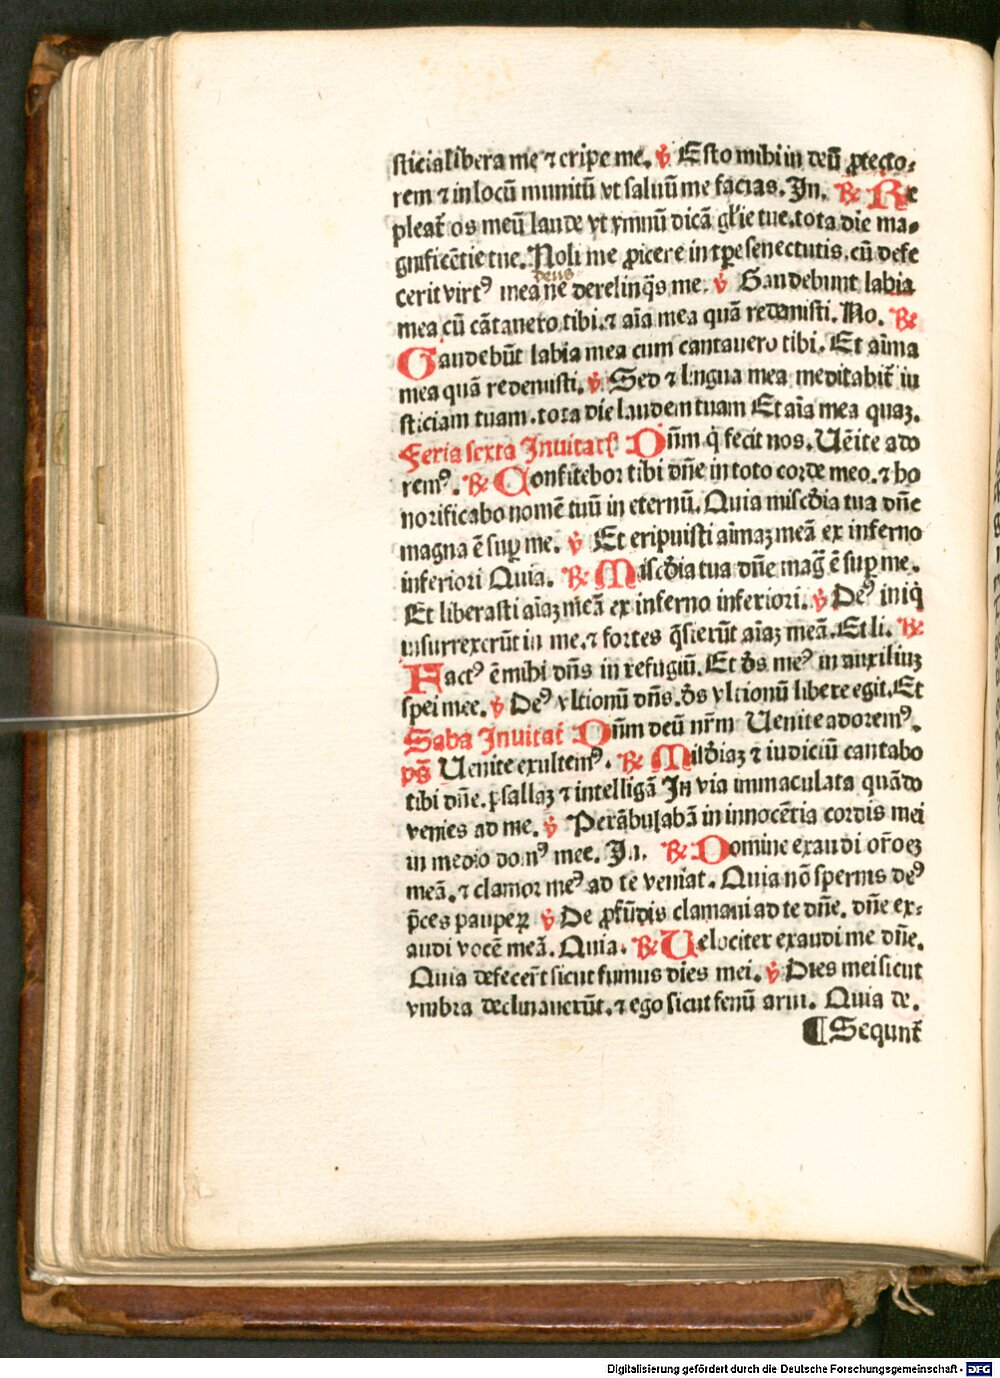 sticia libera me ⁊ eripe me. ℣ Esto mihi in deū ꝓtecto⸗
rem ⁊ in locū munitū vt saluū me facias. In. ℟ Re
pleat̄ os meū laude vt ymnū dicā gl̄ie tue. tota die ma⸗
gnificētie tue. Noli me ꝓicere in tꝑe senectutis. cū defe
deus
cerit virtꝰ mea ne derelinq̄s me. ℣ Gaudebunt labia
mea cū cātauero tibi. ⁊ aīa mea quā redemisti. No. ℟
Gaudebūt labia mea cum cantauero tibi. Et aīma
mea quā redemisti. ℣ Sed ⁊ lingua mea meditabit̄ iu
sticiam tuam. tota die laudem tuam Et aīa mea quaꝫ.
Feria sexta Inuitatʼ Dn̄m q̇ fecit nos. Uēite ado
remꝰ. ℟ Confitebor tibi dn̄e in toto corde meo. ⁊ ho
norificabo nomē tuū in eternū. Quia mīscd̄ia tua dn̄e
magna ē suꝑ me. ℣ Et eripuisti aīmaꝫ meā ex inferno
inferiori Quia. ℟ Miscd̄ia tua dn̄e mag̃ ē suꝑ me.
Et liberasti aīaꝫ meā ex inferno inferiori. ℣ Deꝰ iniq̇
insurrexerūt in me. ⁊ fortes q̄sierūt aīaꝫ meā. Et li. ℟
Factꝰ ē mihi dn̄s in refugiū. Et d̄s meꝰ in auxiliuꝫ
spei mee. ℣ Deꝰ vltionū dn̄s. d̄s vltionū libere egit. Et
Sab̄a Inuitat̄ Dn̄m deū nr̄m Uenite adoremꝰ.
pš Uenite exultemꝰ. ℟ Misd̄iaꝫ ⁊ iudiciū cantabo
tibi dn̄e. psallaꝫ ⁊ intelligā In via immaculata quādo
venies ad me. ℣ Perābulabā in innocētia cordis mei
in medio domꝰ mee. In. ℟ Domine exaudi or̄oeꝫ
meā. ⁊ clamor meꝰ ad te veniat. Quia nō spernis deꝰ
p̄ces pauperꝝ ℣ De ꝓfūdis clamaui ad te dn̄e. dn̄e ex⸗
audi vocē meā. Quia. ℟ Uelociter exaudi me dn̄e.
Quia defecer̄t sicut fumus dies mei. ℣ Dies mei sicut
vmbra declinauerūt. ⁊ ego sicut fenū arui. Quia de.
¶ Sequnt̄
Digitalisierung gefördert durch die Deutsche Forschungsgemeinschaft - DFG